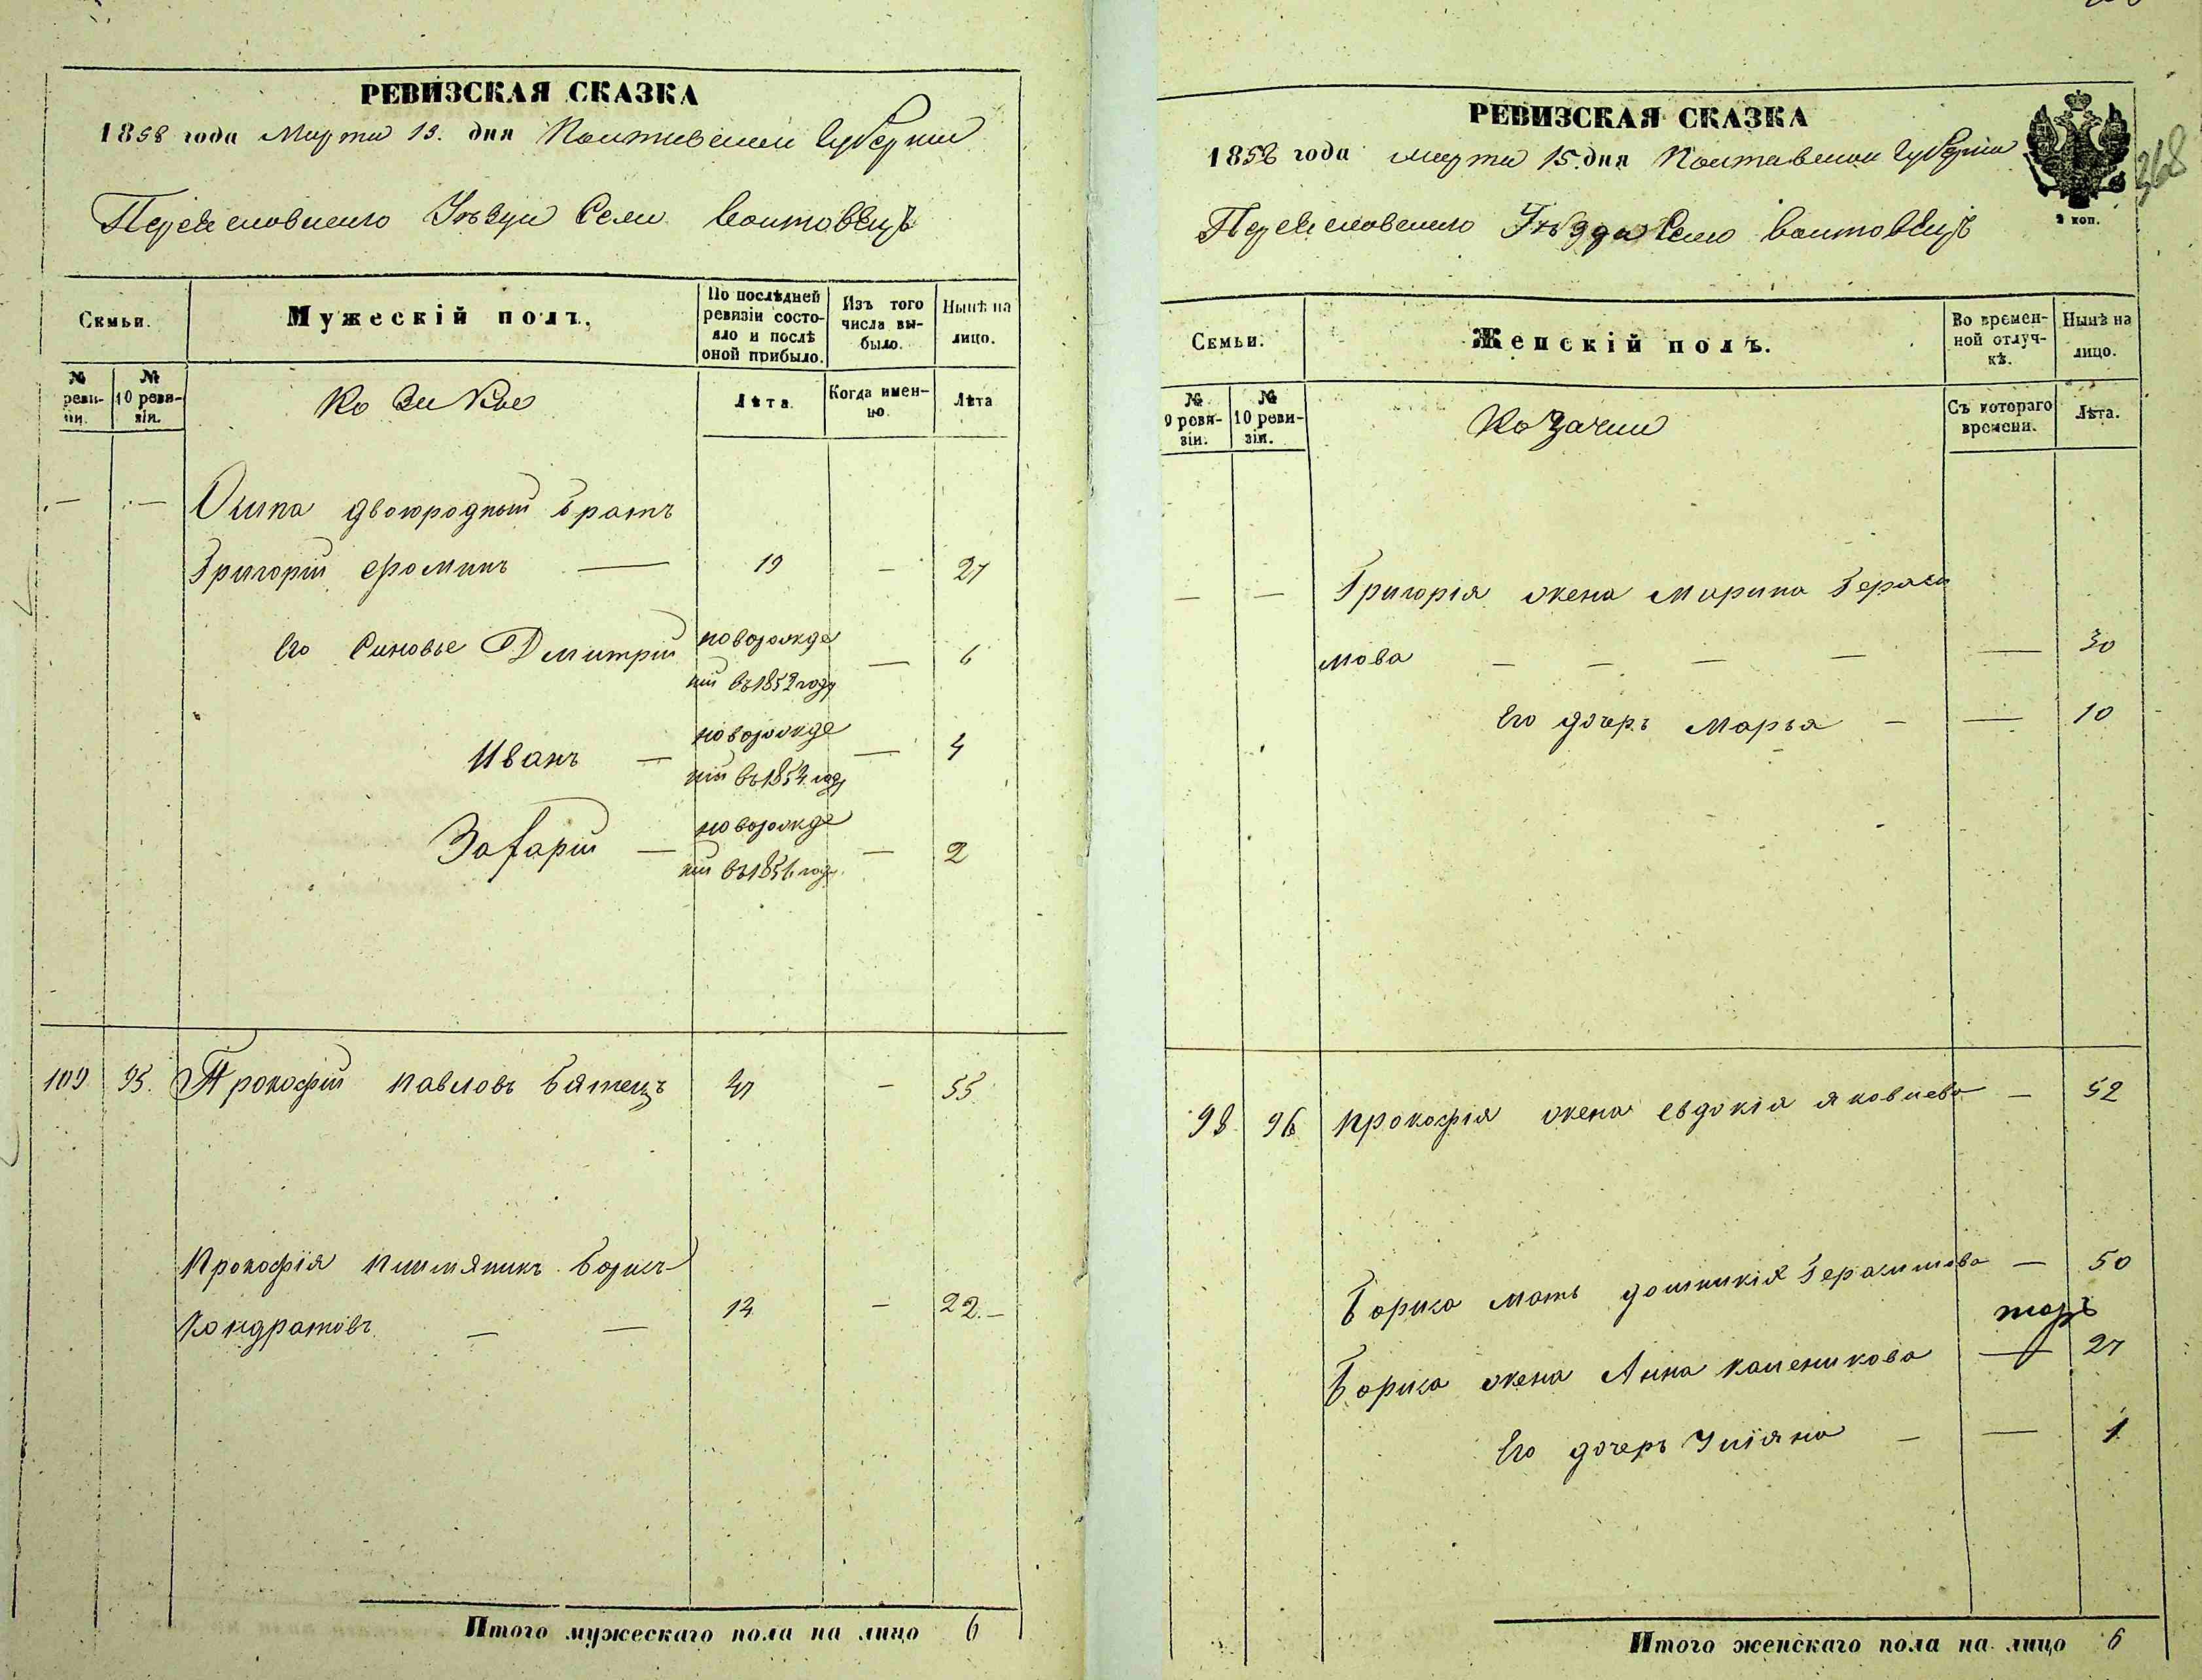 РЕВИЗСКАЯ СКАЗКА
1858 года Марта 15. дня Полтавской Губернии
Переясловского Уѣзда Села Войтовецъ
Семьи.
Мужескій полъ.
По послѣдней ревизіи состояло и послѣ оной прибыло.
Изъ того числа выбыло.
Нынѣ на лицо.
№ реви-зіи.
№ 10 реви-зіи.
Козаков
Лѣта
Когда имен-но.
Лѣта
— — Осипа двоюродный братъ
Григорій Фоминъ — 19 — 27
Его Сыновье Дмитрій новорожде
ный въ 1852 году — 6
Иванъ — новорожде
ный въ 1854 году — 4
Захарій — новорожде
ный въ 1856 году — 2
109 95. Прокофій Павловъ Бятецъ 47 — 55
Прокофія племяникъ Борисъ
Кондратовъ — — 14 — 22. —
Итого мужескаго пола на лицо 6
РЕВИЗСКАЯ СКАЗКА
1858 года Марта 15. дня Полтавской Губерніи
Переясловского Уѣзда Села Войтовецъ
2 коп.
368
Семьи.
Женскій полъ.
Во времен-ной отлуч-кѣ.
Нынѣ на лицо.
№ 9 реви-зіи.
№ 10 реви-зіи.
Козачки
Съ котораго времени.
Лѣта.
— — Григорія жена Марина Гераси
мова — — — — — 30
Его дочерь Марья — — 10
98 96 Прокофія жена Евдокія Яковлева — 52
Бориса мать Домникія Герасимова — 50
тожъ
Бориса жена Анна Каленикова — 27
Его дочерь Уліяна — — 1
Итого женскаго пола на лицо 6